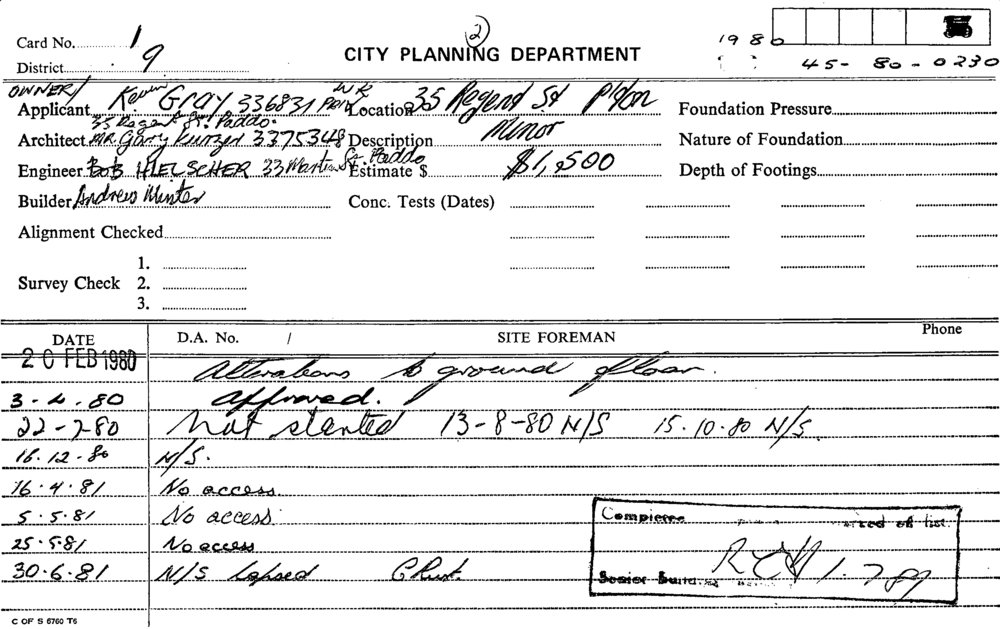 2
Card No. 1
CITY PLANNING DEPARTMENT
1980
District 9
45- 80-0230
OWNER/
Applicant Kevin Gray 336831 Location 35 Regent St P/ton Foundation Pressure
35 Regent St. Paddo.
Architect MR. Gary Kurzer 3375348 Description Minor Nature of Foundation
Engineer BOB HIELSCHER 33 Martin St. Paddo Estimate $ $1,500 Depth of Footings
Builder Andrew Minter Conc. Tests (Dates)
Alignment Checked
1.
Survey Check 2.
3.
DATE D.A. No. / SITE FOREMAN Phone
20 FEB 1980 Alterations to ground floor.
3-4-80 Approved.
22-7-80 Not started 13-8-80 N/S 15.10.80 N/S.
16.12.80 N/S.
16.4.81 No access.
5.5.81 No access.
25.5.81 No access
30.6.81 N/S lapsed C Rust.
Completed of list
Senior 1.7.81
C OF S 6760 T6